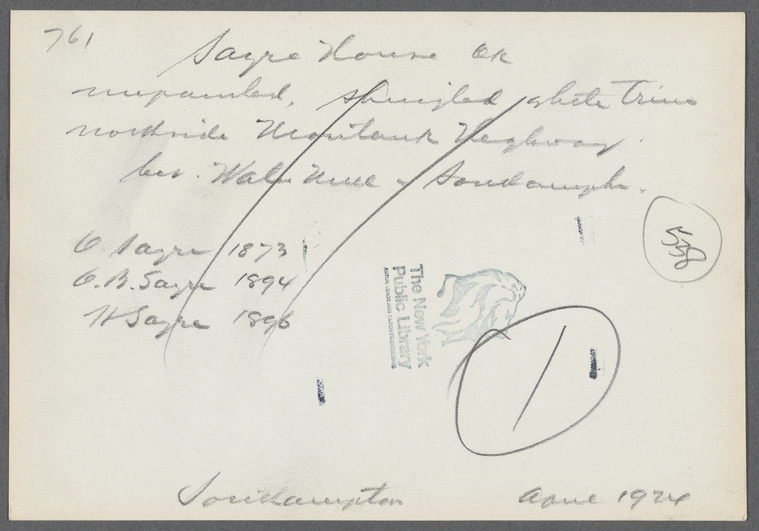 761
Sayre House OK
unpainted, shingled white trim
northside Montauk Highway
bet. Water Mill & Southampton.
558
O. Sayre 1873
O.B. Sayre 1894
H Sayre 1896
The New York
Public Library
1
Southampton April 1924